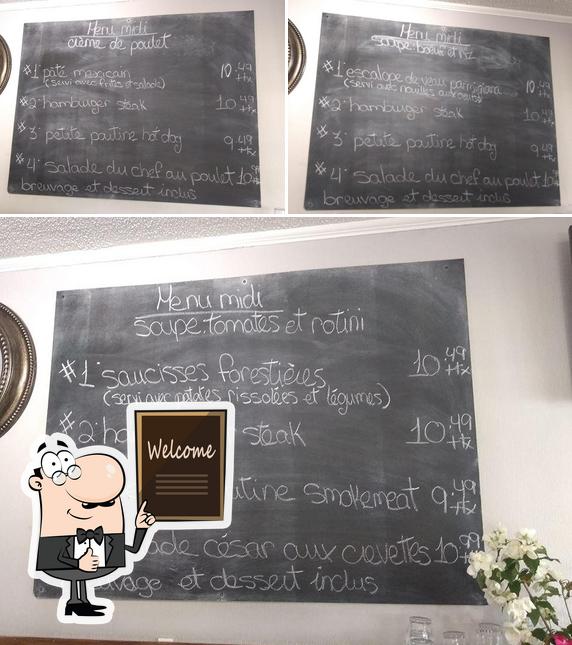 Menu midi
crème de poulet
#1 pâté mexicain 10.49
(servi avec frites et salade) +tx
#2 hamburger steak 10.49
+tx
#3 petite poutine hot dog 9.49
+tx
#4 salade du chef au poulet 10.99
breuvage et dessert inclus
Menu midi
soupe boeuf et riz
#1 escalope de veau parmigiana 10.49
(servi avec nouilles au +tx
#2 hamburger steak 10.49
+tx
#3 petite poutine hot dog 9.49
+tx
#4 salade du chef au poulet 10.99
breuvage et dessert inclus
Menu midi
soupe tomates et rotini
#1 saucisses forestières 10.49
(servi avec patates rissolées et légumes) +tx
#2 ha steak 10.49
+tx
utine smokemeat 9.49
+tx
ade césar aux crevettes 10.99
vage et dessert inclus
Welcome